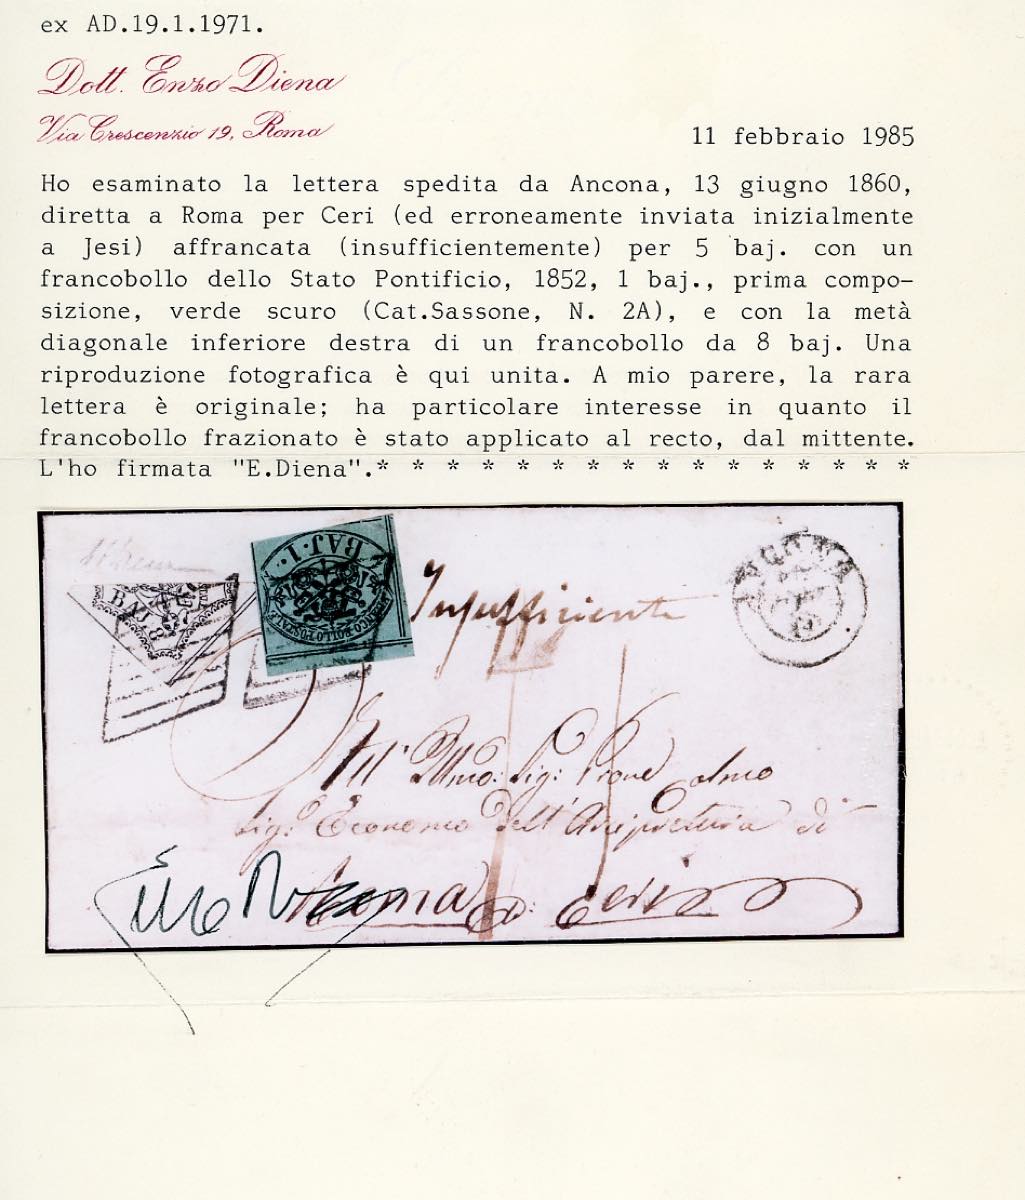 ex AD.19.1.1971.
Dott. Enzo Diena
Via Crescenzio 19, Roma
11 febbraio 1985
Ho esaminato la lettera spedita da Ancona, 13 giugno 1860,
diretta a Roma per Ceri (ed erroneamente inviata inizialmente
a Jesi) affrancata (insufficientemente) per 5 baj. con un
francobollo dello Stato Pontificio, 1852, 1 baj., prima compo-
sizione, verde scuro (Cat.Sassone, N. 2A), e con la metà
diagonale inferiore destra di un francobollo da 8 baj. Una
riproduzione fotografica è qui unita. A mio parere, la rara
lettera è originale; ha particolare interesse in quanto il
francobollo frazionato è stato applicato al recto, dal mittente.
L'ho firmata "E.Diena".* * * * * * * * * * * * * * * *
BAJ. 1.
FRANCO BOLLO POSTALE
BAJ 8
Insufficiente
ANCONA
All' Illmo: Sig: Prone Colmo
Sig: Economo dell' Arcipretura di
Roma p: Ceri